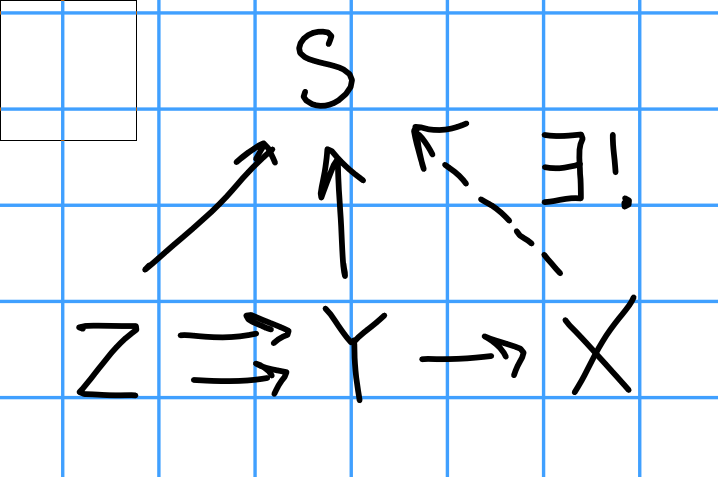 S
∃!
Z ⇉ Y → X